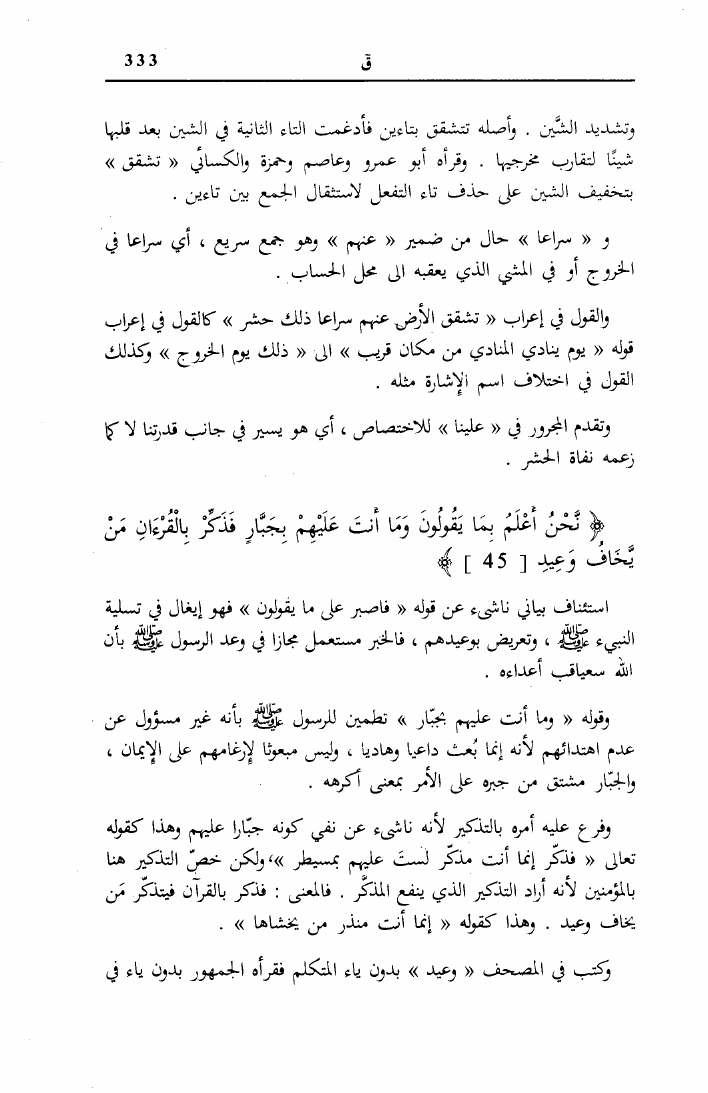 333 قٓ
وتشديد الشَّين . وأصله تتشقق بتاءين فأدغمت التاء الثانية في الشين بعد قلبها
شينًا لتقارب مخرجيها . وقرأه أبو عمرو وعاصم وحمزة والكسائي « تشقق »
بتخفيف الشين على حذف تاء التفعل لاستثقال الجمع بين تاءين .
و « سراعا » حال من ضمير « عنهم » وهو جمع سريع ، أي سراعا في
الخروج أو في المشي الذي يعقبه الى محل الحساب .
والقول في إعراب « تشقق الأرض عنهم سراعا ذلك حشر » كالقول في إعراب
قوله « يوم ينادي المنادي من مكان قريب » الى « ذلك يوم الخروج » وكذلك
القول في اختلاف اسم الإشارة مثله .
وتقدم المجرور في « علينا » للاختصاص ، أي هو يسير في جانب قدرتنا لا كما
زعمه نفاة الحشر .
﴿ نَّحْنُ أَعْلَمُ بِمَا يَقُولُونَ وَمَا أَنتَ عَلَيْهِمْ بِجَبَّارٍ فَذَكِّرْ بِالْقُرْءَانِ مَنْ
يَّخَافُ وَعِيدِ [ 45 ] ﴾
استئناف بياني ناشىء عن قوله « فاصبر على ما يقولون » فهو إيغال في تسلية
النبيء ﷺ ، وتعريض بوعيدهم ، فالخبر مستعمل مجازا في وعد الرسول ﷺ بأن
الله سيعاقب أعداءه .
وقوله « وما أنت عليهم بجبّار » تطمين للرسول ﷺ بأنه غير مسؤول عن
عدم اهتدائهم لأنه إنما بُعث داعيا وهاديا ، وليس مبعوثا لإرغامهم على الإيمان ،
والجبّار مشتق من جبره على الأمر بمعنى أكرهه .
وفرع عليه أمره بالتذكير لأنه ناشىء عن نفي كونه جبّارا عليهم وهذا كقوله
تعالى « فذكّر إنما أنت مذكّر لستَ عليهم بمسيطر »، ولكن خصّ التذكير هنا
بالمؤمنين لأنه أراد التذكير الذي ينفع المذكَّر . فالمعنى : فذكر بالقرآن فيتذكّر مَن
يخاف وعيد . وهذا كقوله « إنما أنت منذر من يخشاها » .
وكتب في المصحف « وعيد » بدون ياء المتكلم فقرأه الجمهور بدون ياء في